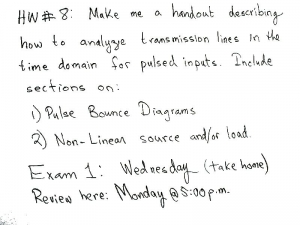 HW#8: Make me a handout describing
how to analyze transmission lines in the
time domain for pulsed inputs. Include
sections on:
1) Pulse Bounce Diagrams
2) Non-Linear source and/or load.
Exam 1: Wednesday (take home)
Review here: Monday @ 5:00 p.m.